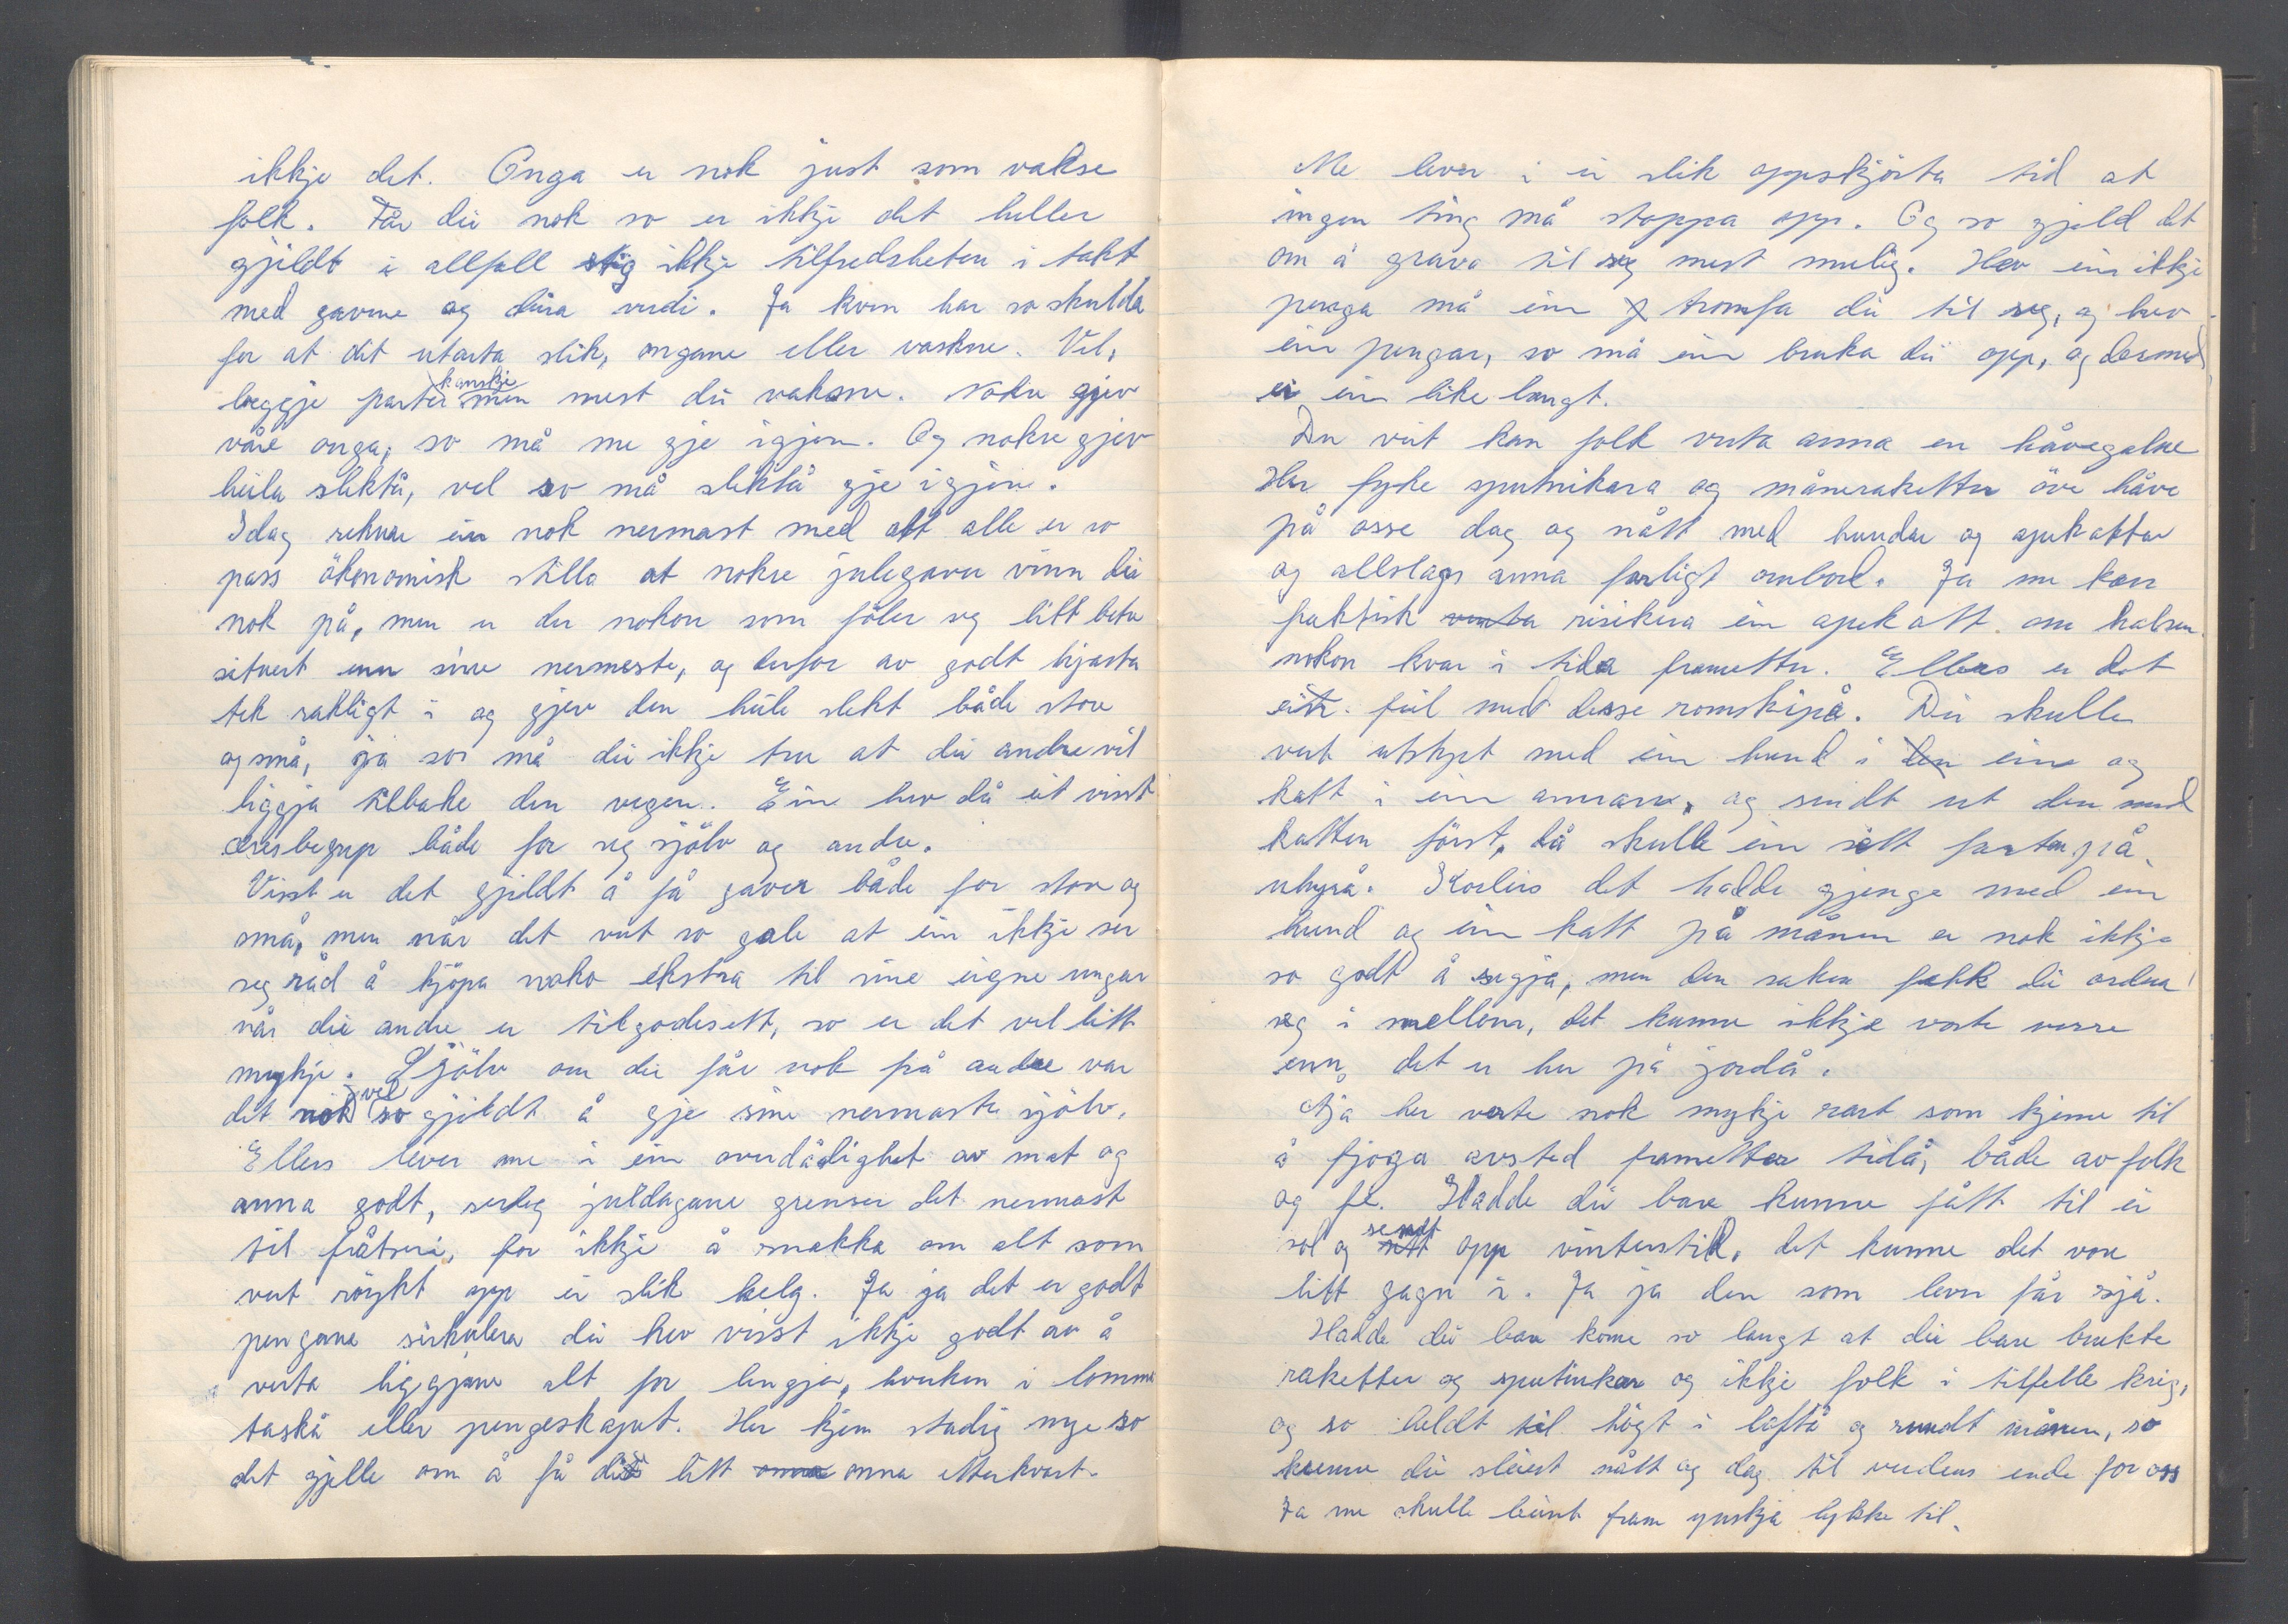 ikkje det. Onga er nok just som vakse
folk. Får dei nok so er ikkje det heller
gjildt i allfall stig ikkje tilfredsheten i takt
med gavene og deira verdi. Ja kven har so skulda
for at det utarta slik, ongane eller vaksne. Vel,
beggje parter kanskje men mest dei vaksne. Nokre gjev
våre onga, so må me gje igjen. Og nokre gjev
heila slektå, vel so må slektå gje igjen.
Idag reknar ein nok nermast med att alle er so
pass ökonomisk stilla at nokre julegaver vinn dei
nok på, men er der nokon som föler seg litt betre
situert enn sine nermeste, og derfor av godt hjarta
tek rakligt i og gjev den heile slekt både store
og små, ja so må dei ikkje tru at dei andre vil
liggja tilbake den vegen. Ein hev då eit visst
æresbegrep både for seg sjölv og andre.
Visst er det gjildt å få gaver både for store og
små, men når det vert so gale at ein ikkje ser
seg råd å kjöpa noko ekstra til sine eigne ungar
når dei andre er tilgodesett, so er det vel litt
mykje. Sjölv om dei får nok frå andre var
det nok vel so gjildt å gje sine nermaste sjölv.
Ellers lever me i ein overdådighet av mat og
anna godt, serleg juledagane grenser det nermast
til fråtseri, for ikkje å snakka om alt som
vert röykt opp ei slik helg. Ja ja det er godt
pengane sirkulera dei hev visst ikkje godt av å
verta liggjane alt for lengje, hverken i lomme
taskå eller pengeskapet. Her kjem stadig mye so
det gjelle om å få det litt onna etterkvart.
Me lever i ei slik oppskjörta tid at
ingen ting må stoppa opp. Og so gjeld det
om å grava til seg mest mulig. Hev ein ikkje
penga må ein tromfa dei til seg, og hev
ein pengar, so må ein bruka dei opp, og dermed
er ein like langt.
Den veit kan folk verta anna en håvegalne
Her fyke sputnikara og måneraketter öve håve
på osse dag og nått med hunder og apekattar
og allslags anna farligt ombord. Ja me kan
faktisk venta risikera ein apekatt om halsen
nokon kvar i tida frametter. Ellers er det
ein feil med desse romskipå. Dei skulle
vert utstyrt med ein hund i den eine og
katt i ein annan, og sendt ut den med
katten först, då skulle ein sett farten på
uhyrå. Korleis det hadde gjenge med ein
hund og ein katt på månen er nok ikkje
so godt å segja, men den saken fekk dei ordna
seg i mellom, det kunne ikkje vorte verre
enn det er her på jordå.
Nja her verte nok mykje rart som kjeme til
å fjoga avsted frametter tidå, både av folk
og fe. Hadde dei bare kunne fått til ei
sol og sett sendt opp vinterstid, det kunne det vore
litt gagn i. Ja ja den som lever får sjå.
Hadde dei bare kome so langt at dei bare brukte
raketter og sputnikar og ikkje folk i tilfelle krig,
og so heldt til högt i loftå og rundt månen, so
kunne dei sleiest nått og dag til verdens ende for oss
Ja me skulle beint fram ynskja lykke til.